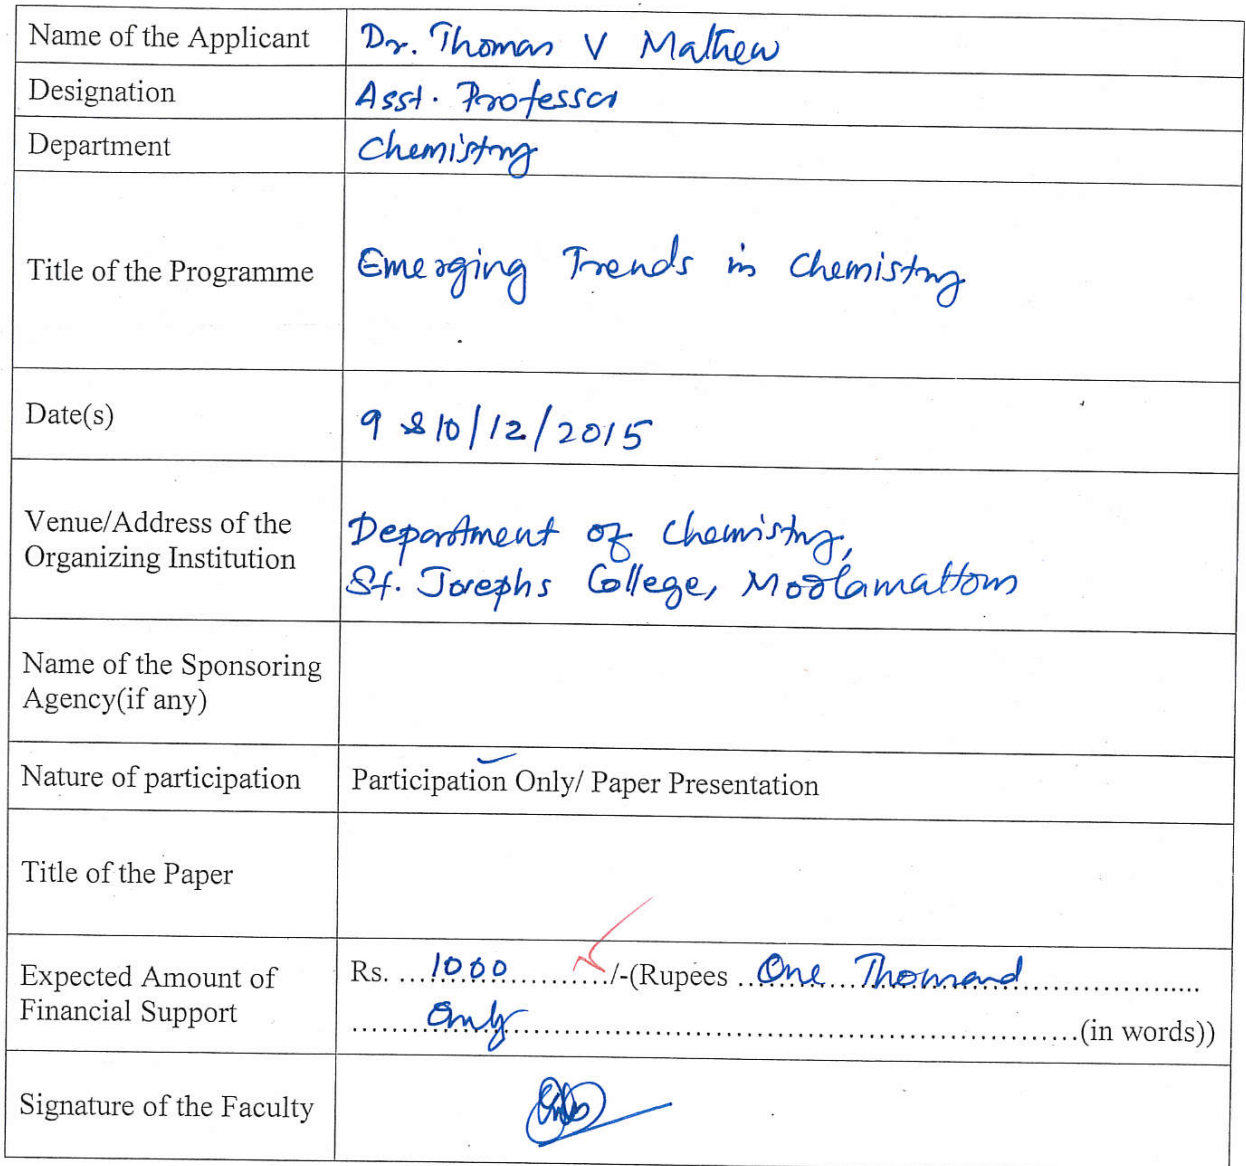 Name of the Applicant Dr. Thomas V Mathew
Designation Asst. Professor
Department Chemistry
Title of the Programme Emerging Trends in Chemistry
Date(s) 9 & 10/12/2015
Venue/Address of the
Organizing Institution
Department of Chemistry,
St. Josephs College, Moolamattom
Name of the Sponsoring
Agency(if any)
Nature of participation Participation Only/ Paper Presentation
Title of the Paper
Expected Amount of
Financial Support
Rs. ...1000............/-(Rupees ..One Thousand......................
..........Only..........................................................(in words))
Signature of the Faculty